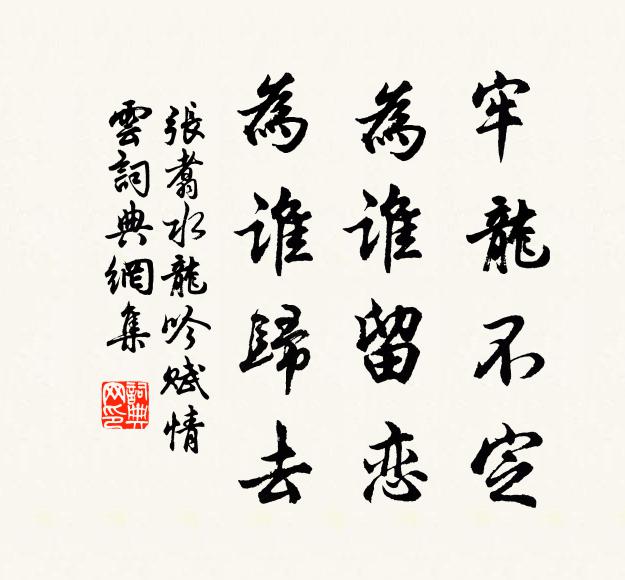 牢龍不定
為誰留恋
為誰歸去
張翥水龍吟賦情
雲詞典網集
詞典
网印